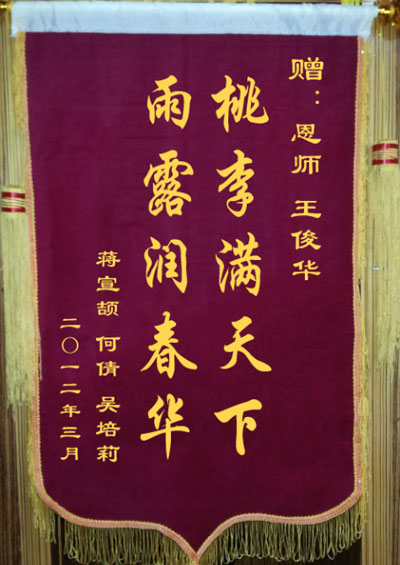 赠：恩师 王俊华
桃李满天下
雨露润春华
蒋宣颉 何倩 吴培莉
二〇一二年三月